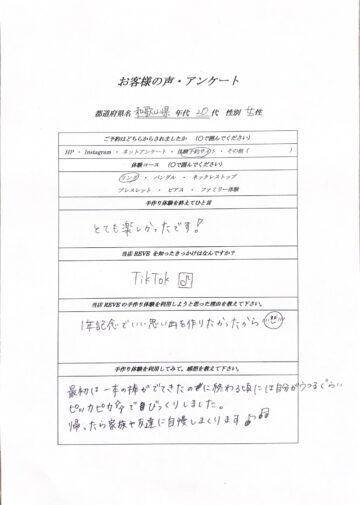 お客様の声・アンケート
都道府県名 和歌山県 年代 20 代 性別 女性
ご予約はどちらからされましたか (○で囲んでください)
HP ・ Instagram ・ ネットアンケート ・ 体験予約サイト ・ その他 ( )
体験コース (○で囲んでください)
リング ・ バングル ・ ネックレストップ
ブレスレット ・ ピアス ・ ファミリー体験
手作り体験を終えてひと言
とても楽しかったです!
当店 REVE を知ったきっかけはなんですか?
TikTok
当店 REVE の手作り体験を利用しようと思った理由を教えて下さい。
1年記念でいい思い出を作りたかったから
手作り体験を利用してみて、感想を教えて下さい。
最初は一本の棒がでてきたのに終わる頃には自分がうつるぐらい
ピッカピカでびっくりしました。
帰ったら家族や友達に自慢しまくります